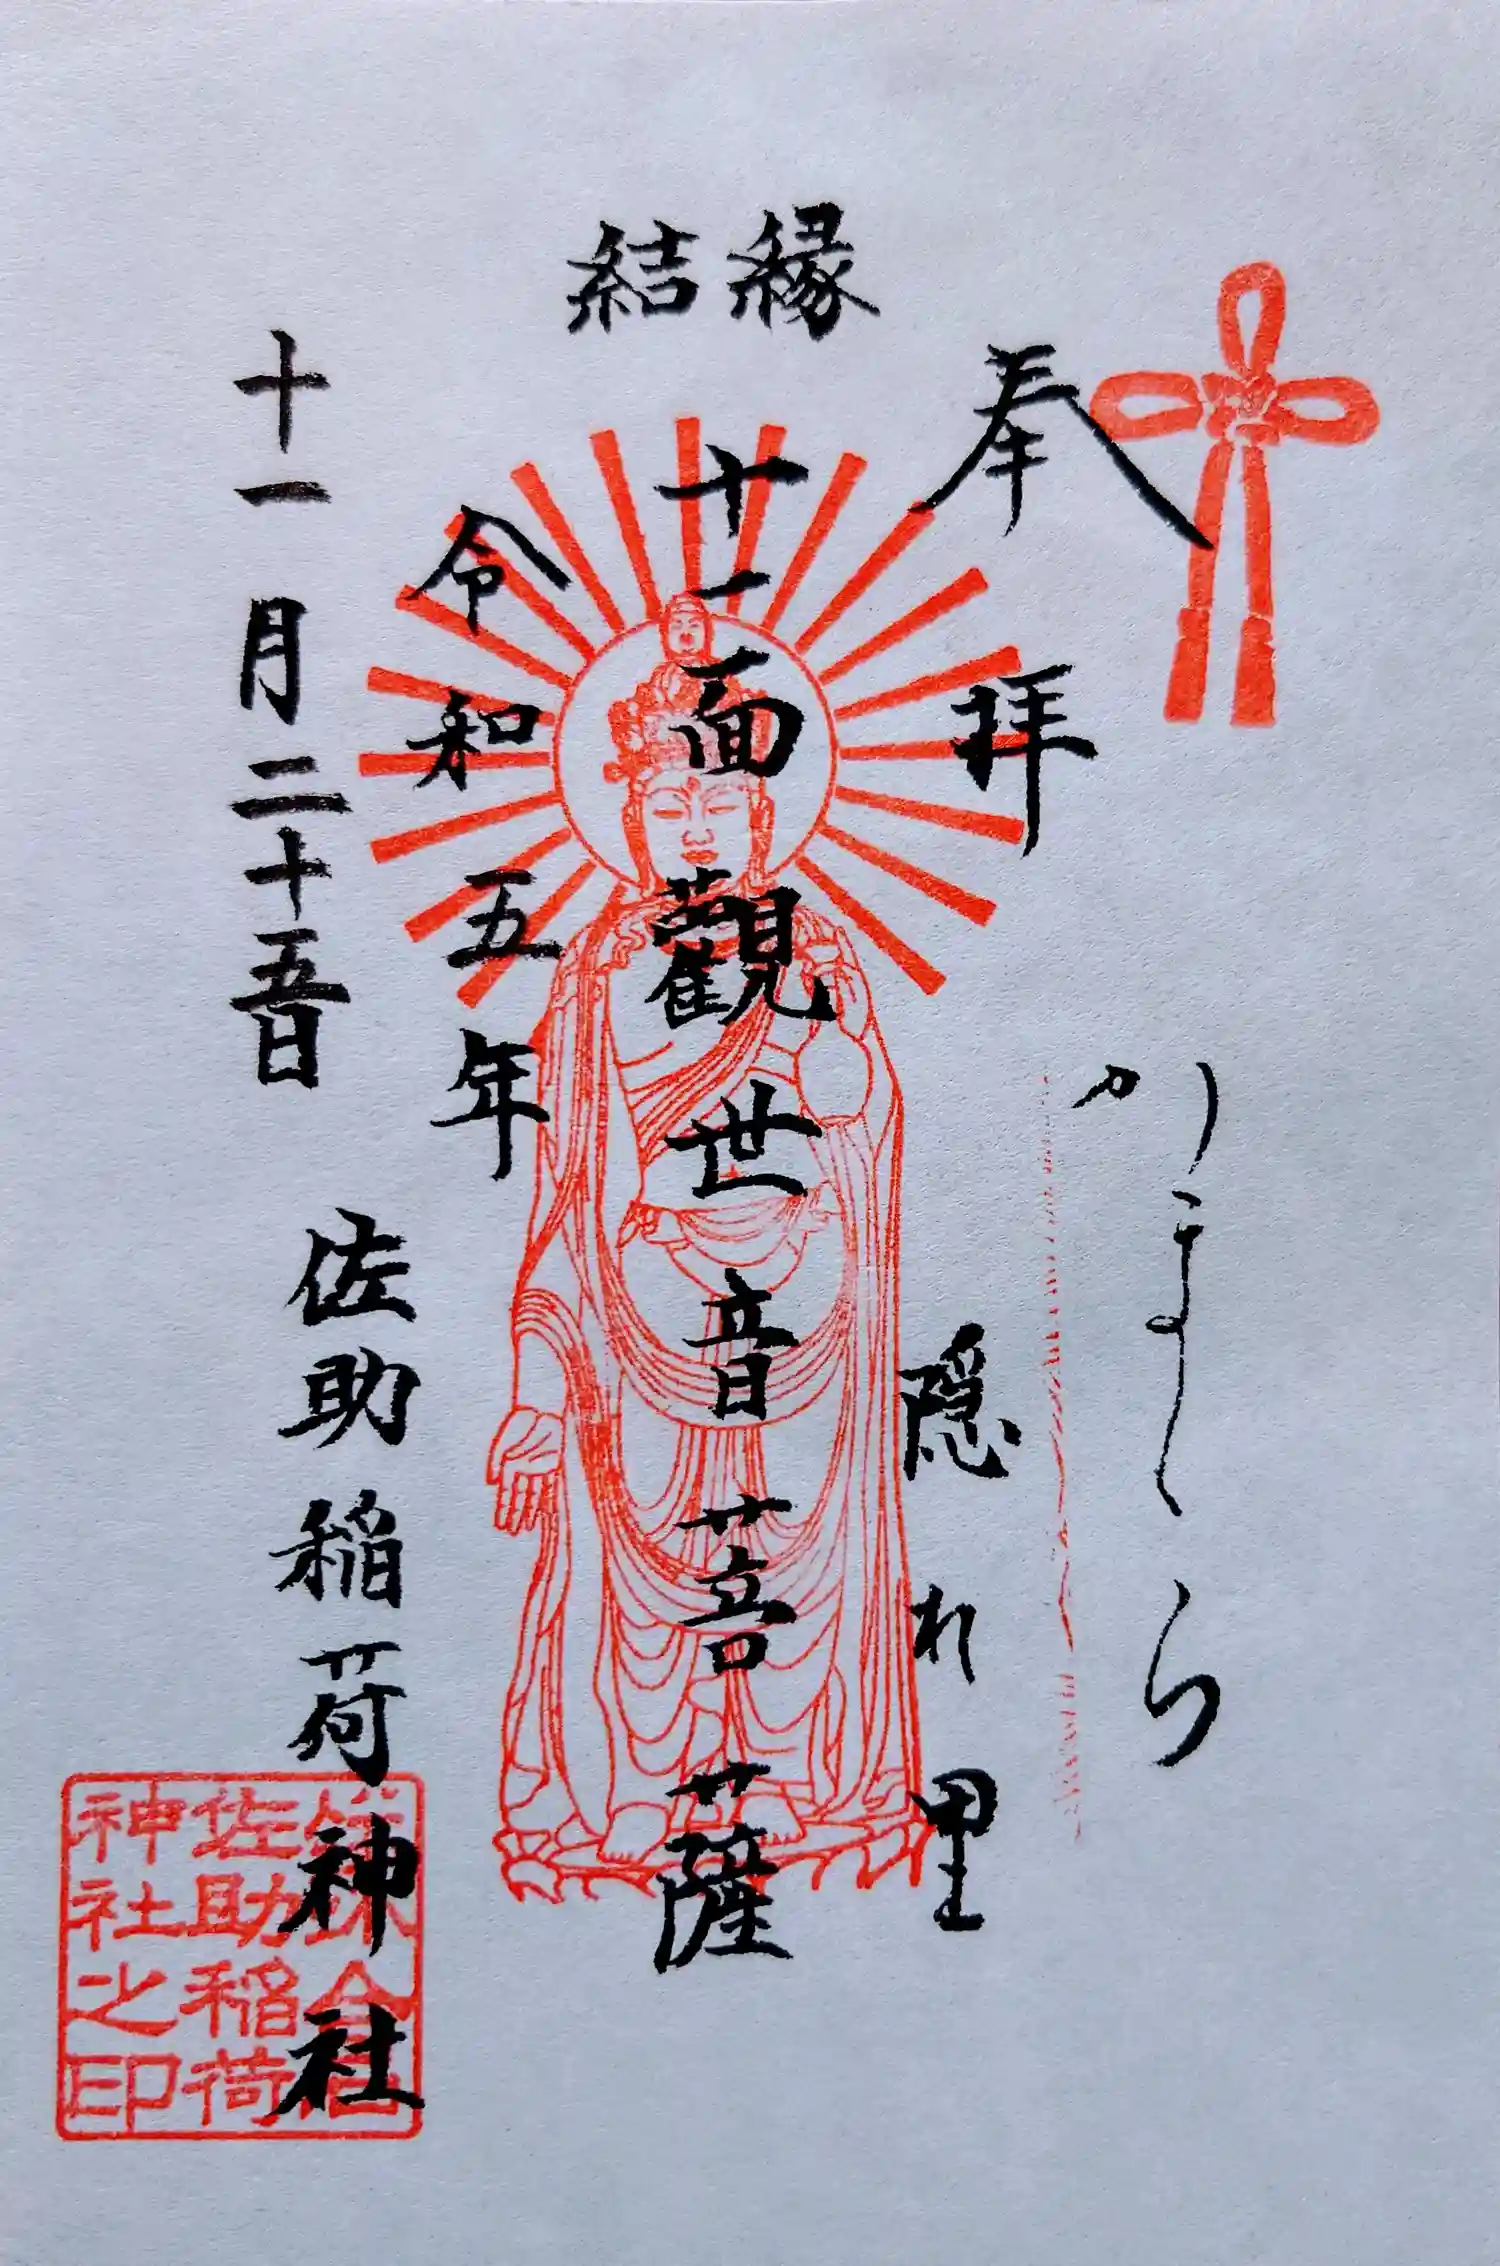 縁結
奉拝
かまくら
隠れ里
十一面觀世音菩薩
令和五年
十一月二十五日
佐助稲荷神社
鎌倉
佐助稲荷
神社之印